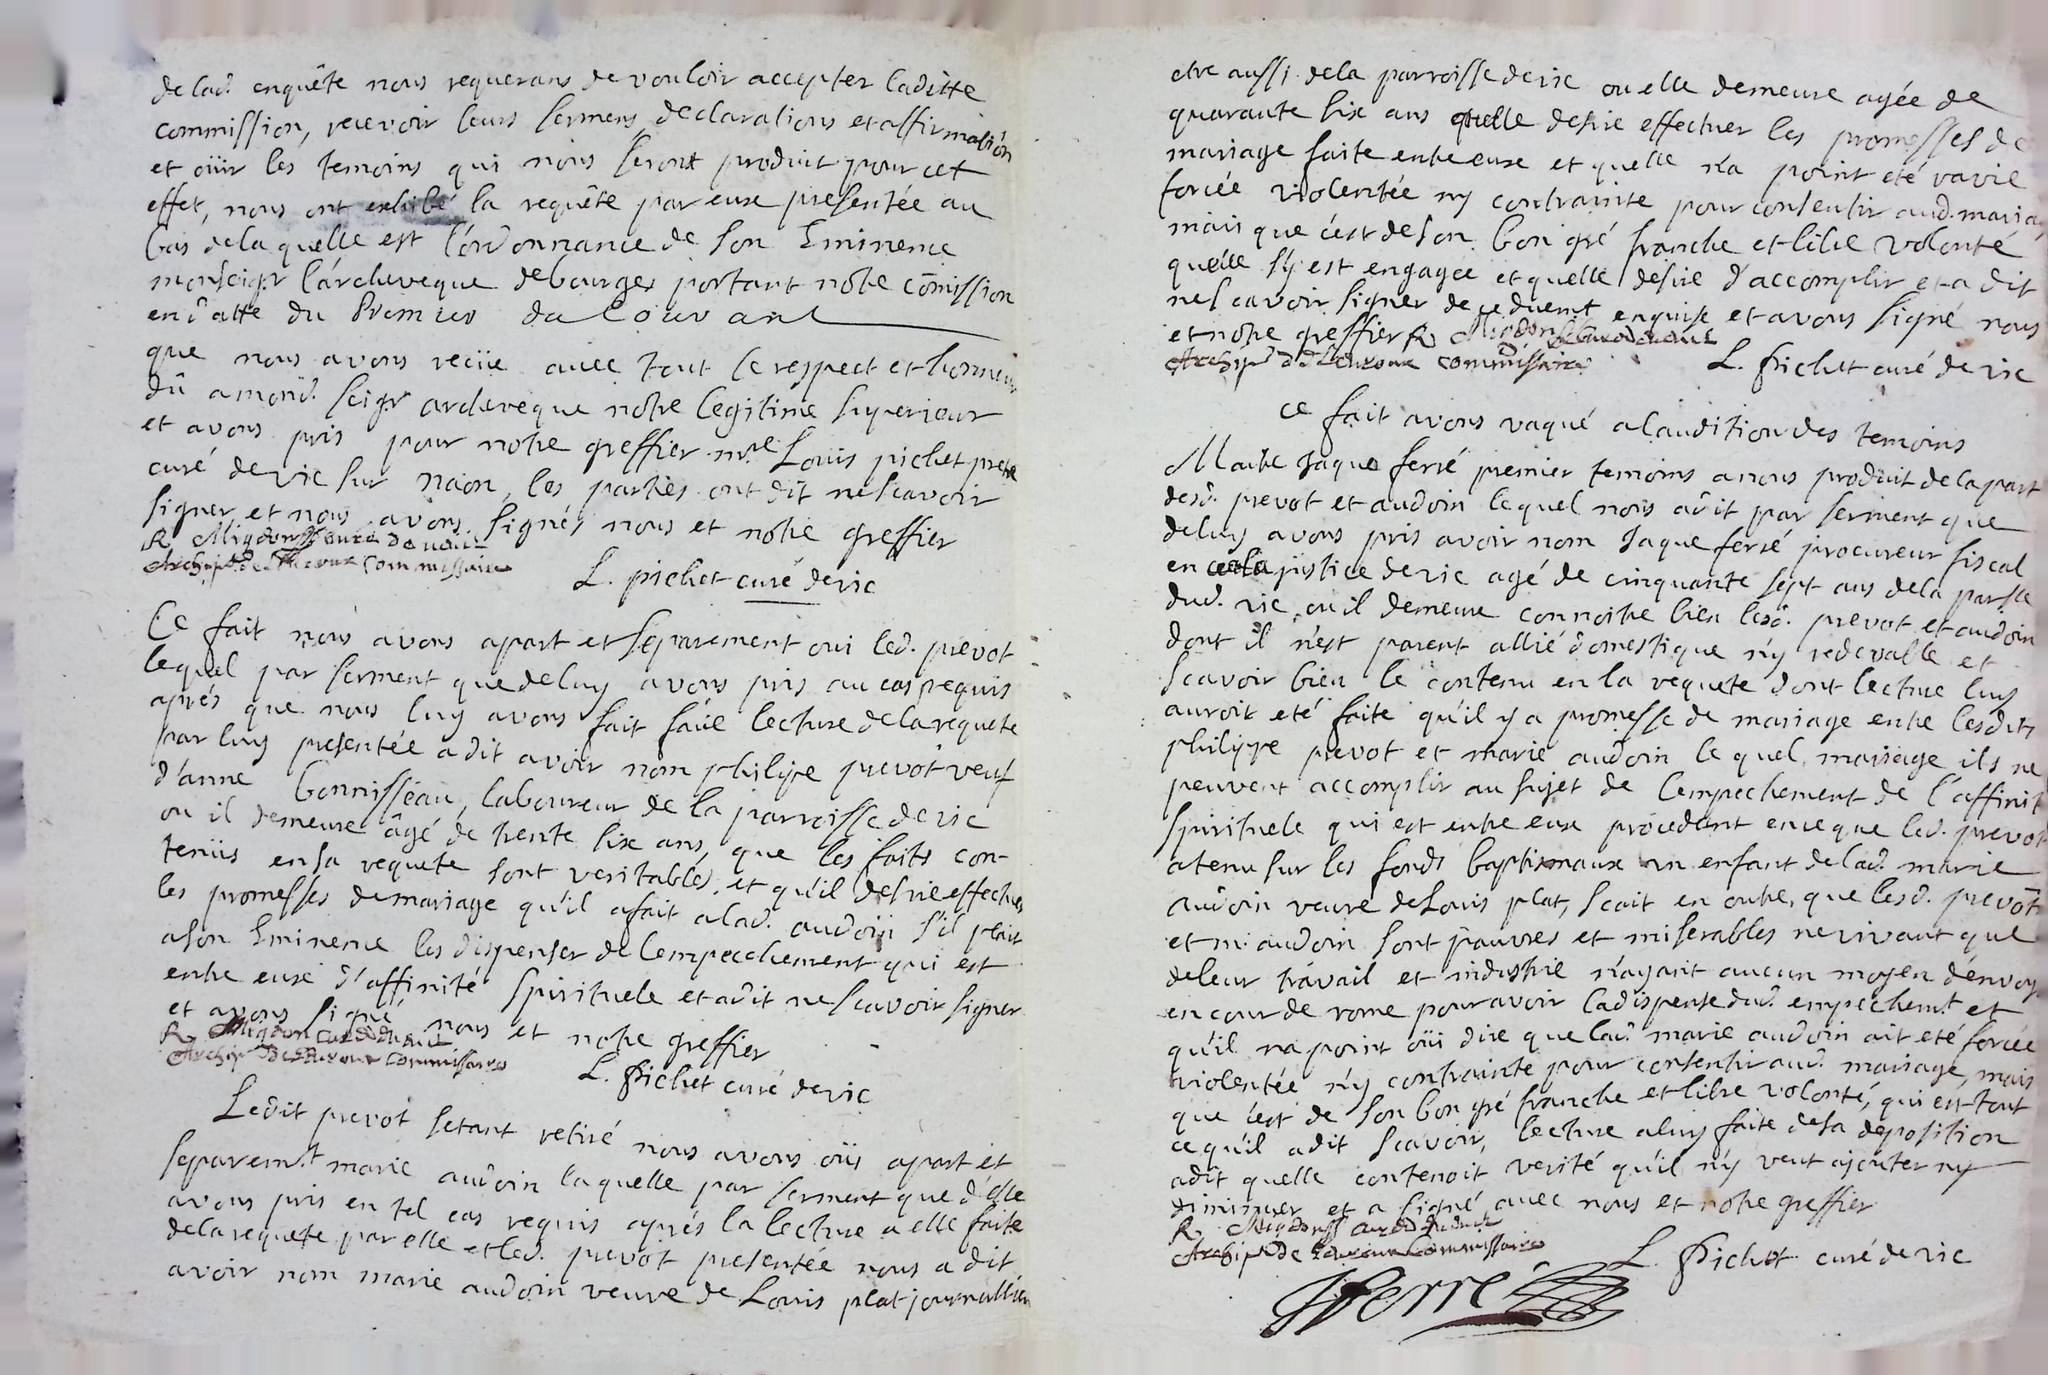 de lad. enquête nous requerans de vouloir accepter laditte
commission, recevoir leurs sermens declarations et affirmation
et oüir les temoins qui nous seront produit pour cet
effet, nous ont exhibé la requête par eux presentée au
bas de laquelle est l'ordonnance de son Eminence
monseigr l'archeveque de bourges portant notre comission
en datte du Premier du Courant
que nous avons reciie avec tout le respect et honneur
dû a mond. seigr archeveque notre legitime superieur
et avons pris pour notre greffier mre Louis pichet pretre
curé de vic sur naon, les parties ont dit ne scavoir
signer et nous avons signés nous et notre greffier
R Migdon curé de
Archip. de commissaire
L. pichet curé de vic
Ce fait nous avons apart et separement oui led. prevot
lequel par serment que de luy avons pris au cas requis
aprés que nous luy avons fait faire lecture de la requete
par luy presentée a dit avoir nom philipe prevot veuf
d'anne bonnisseau, laboureur de la parroisse de vic
ou il demeure âgé de trente six ans, que les faits con-
tenüs en sa requete sont veritables, et qu'il desire effectuer
les promesses de mariage qu'il a fait a lad. audoin s'il plait
a son Eminence les dispenser de l'empechement qui est
entre eux d'affinité spirituele et a dit ne scavoir signer
et avons signé nous et notre greffier
R Migdon curé de
Archip. de commissaire
L. Pichet curé de vic
Ledit prevot setant retiré nous avons oüi apart et
separemt marie audoin laquelle par serment que d'elle
avons pris en tel cas requis aprés la lecture a elle faite
de la requete par elle et led. prevot presentée nous a dit
avoir nom marie audoin veuve de Louis plat journallier
etre aussi de la parroisse de vic ou elle demeure agée de
quarante six ans quelle desire effectuer les promesses de
mariage faite entre eux et quelle n'a point eté ravie
forcée violentée ny contrainte pour consentir aud. mariage
mais que c'est de son bon gré franche et libre volonté
quelle s'y est engagée et quelle desire d'accomplir et a dit
ne scavoir signer de ce duemt enquise et avons signé nous
et notre greffier R Migdon curé de
Archip. de commissaire
L. Pichet curé de vic
ce fait avons vaqué a laudition des temoins
Maitre Jaque ferré premier temoins a nous produit de la part
desd. prevot et audoin lequel nous a dit par serment que
de luy avons pris avoir nom Jaque ferré procureur fiscal
en la justice de vic agé de cinquante sept ans de la parsse
dud. vic ou il demeure connoitre bien lesd. prevot et audoin
dont il n'est parent allié domestique n'y redevable et
scavoir bien le contenu en la requete dont lecture luy
auroit eté faite qu'il y a promesse de mariage entre lesdits
philippe prevot et marie audoin le quel mariage ils ne
peuvent accomplir au sujet de l'empechement de l'affinité
spirituele qui est entre eux procedant en ce que led. prevot
a tenu sur les fonds baptismaux un enfant de lad. marie
audoin veuve de Louis plat, scait en outre, que lesd. prevot
et m. audoin sont pauvres et miserables ne vivant que
de leur travail et industrie n'ayant aucun moyen d'envoyer
en cour de rome pour avoir la dispense dud. empechemt et
qu'il na point oüi dire que lad. marie audoin ait eté forcée
violentée n'y contrainte pour consentir aud. mariage, mais
que c'est de son bon gré franche et libre volonté, qui est tout
ce qu'il a dit scavoir, lecture a luy faite de sa deposition
a dit quelle contenoit verité qu'il n'y veut ajouter ny
diminuer et a signé avec nous et notre greffier
R Migdon curé de
Archip. de commissaire
L. Pichet curé de vic
Jferré